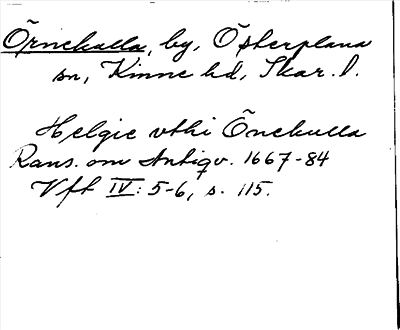 Örnekulla, by, Österplana
sn, Kinne hd, Skar. l.
Helgie vthi Önekulla
Rans. om Antiqv. 1667-84
Vft IV: 5-6, s. 115.